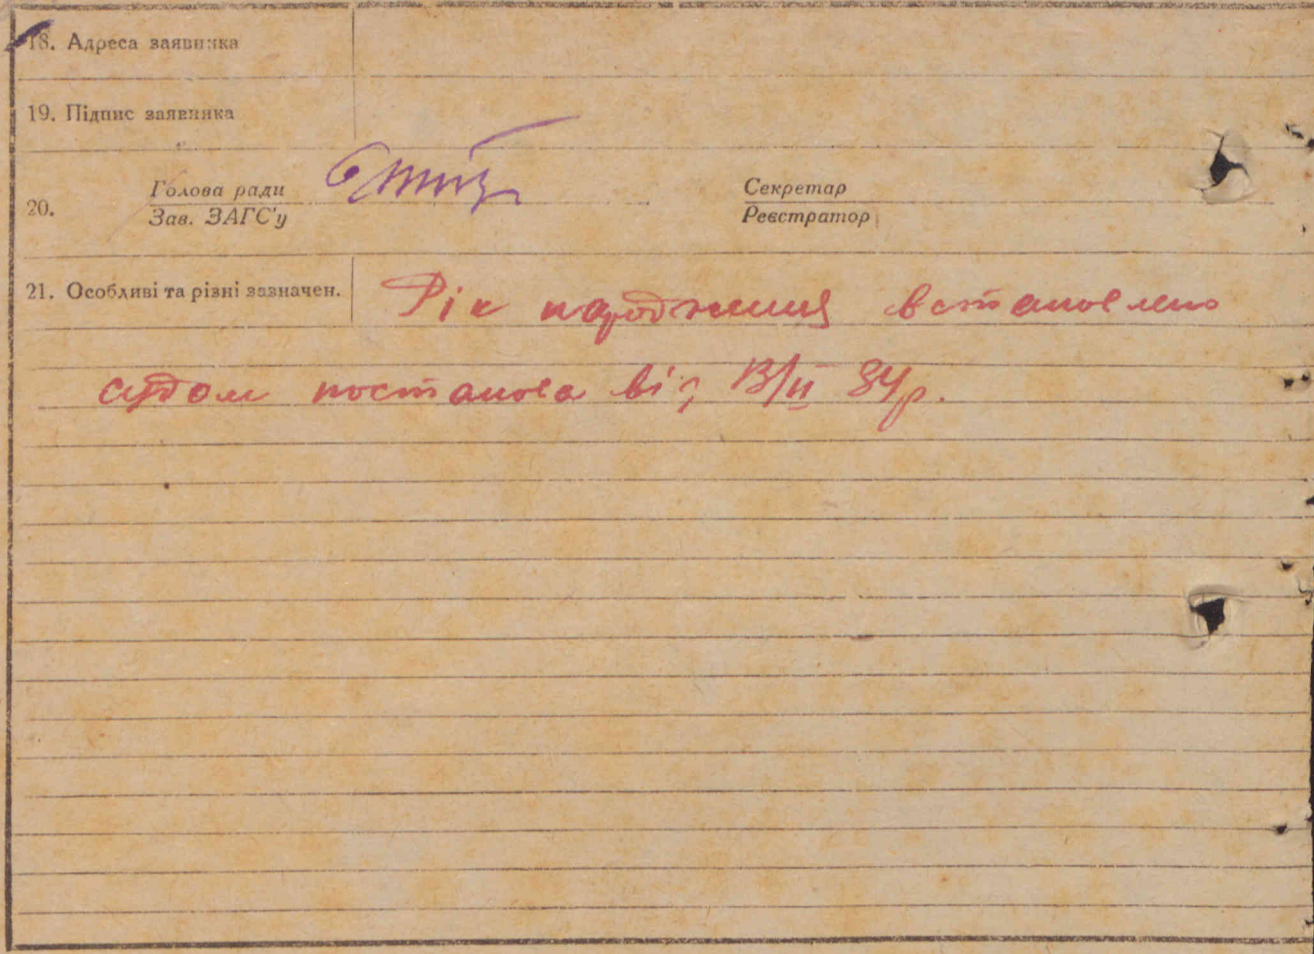 18. Адреса заявника
19. Підпис заявника
20. Голова ради
Зав. ЗАГС'у
Секретар
Реєстратор
21. Особливі та різні зазначен. Рік народження встановлено
судом постанова від 13/II 34р.